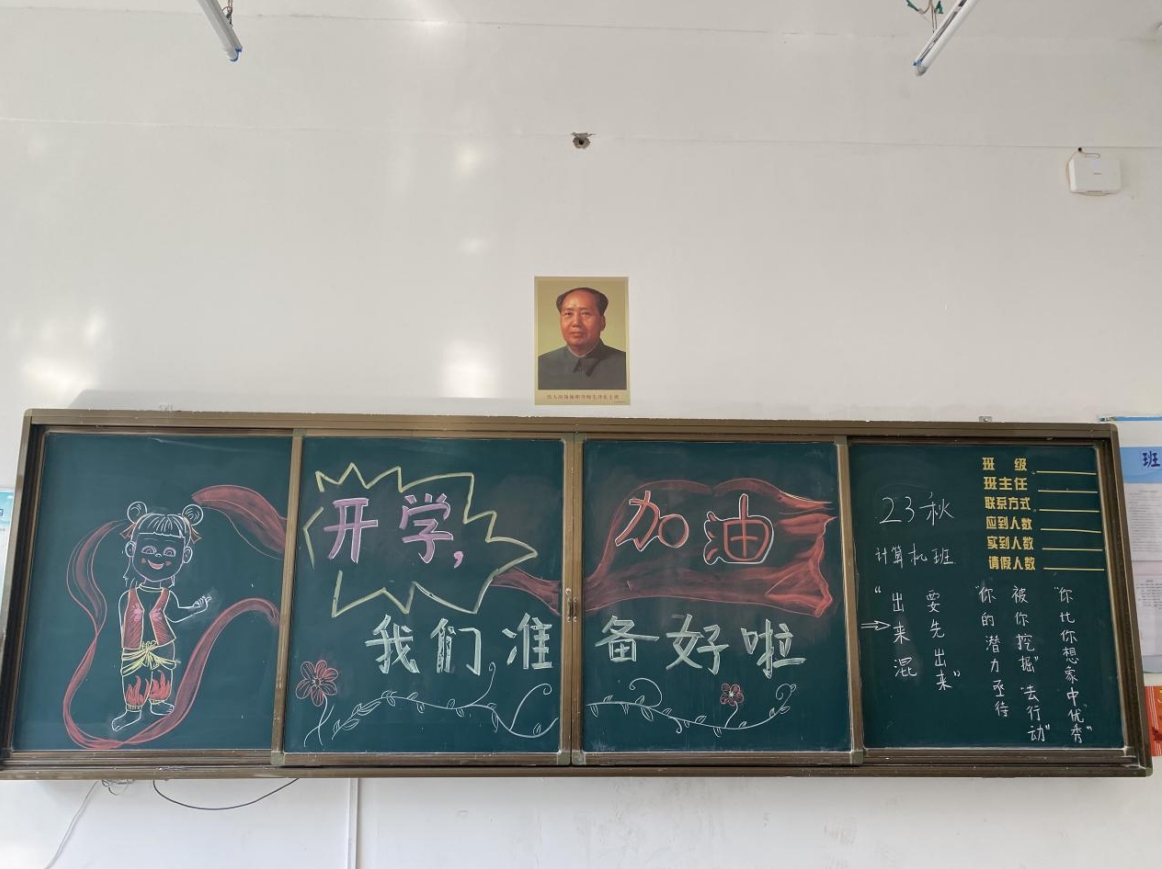 开学,
加油
我们准备好啦
23秋
计算机班
班级
班主任
联系方式
应到人数
实到人数
请假人数
"你比你想象中优秀"
"你的潜力亟待
被你挖掘"
"去行动"
"出来混
要先出来"
班